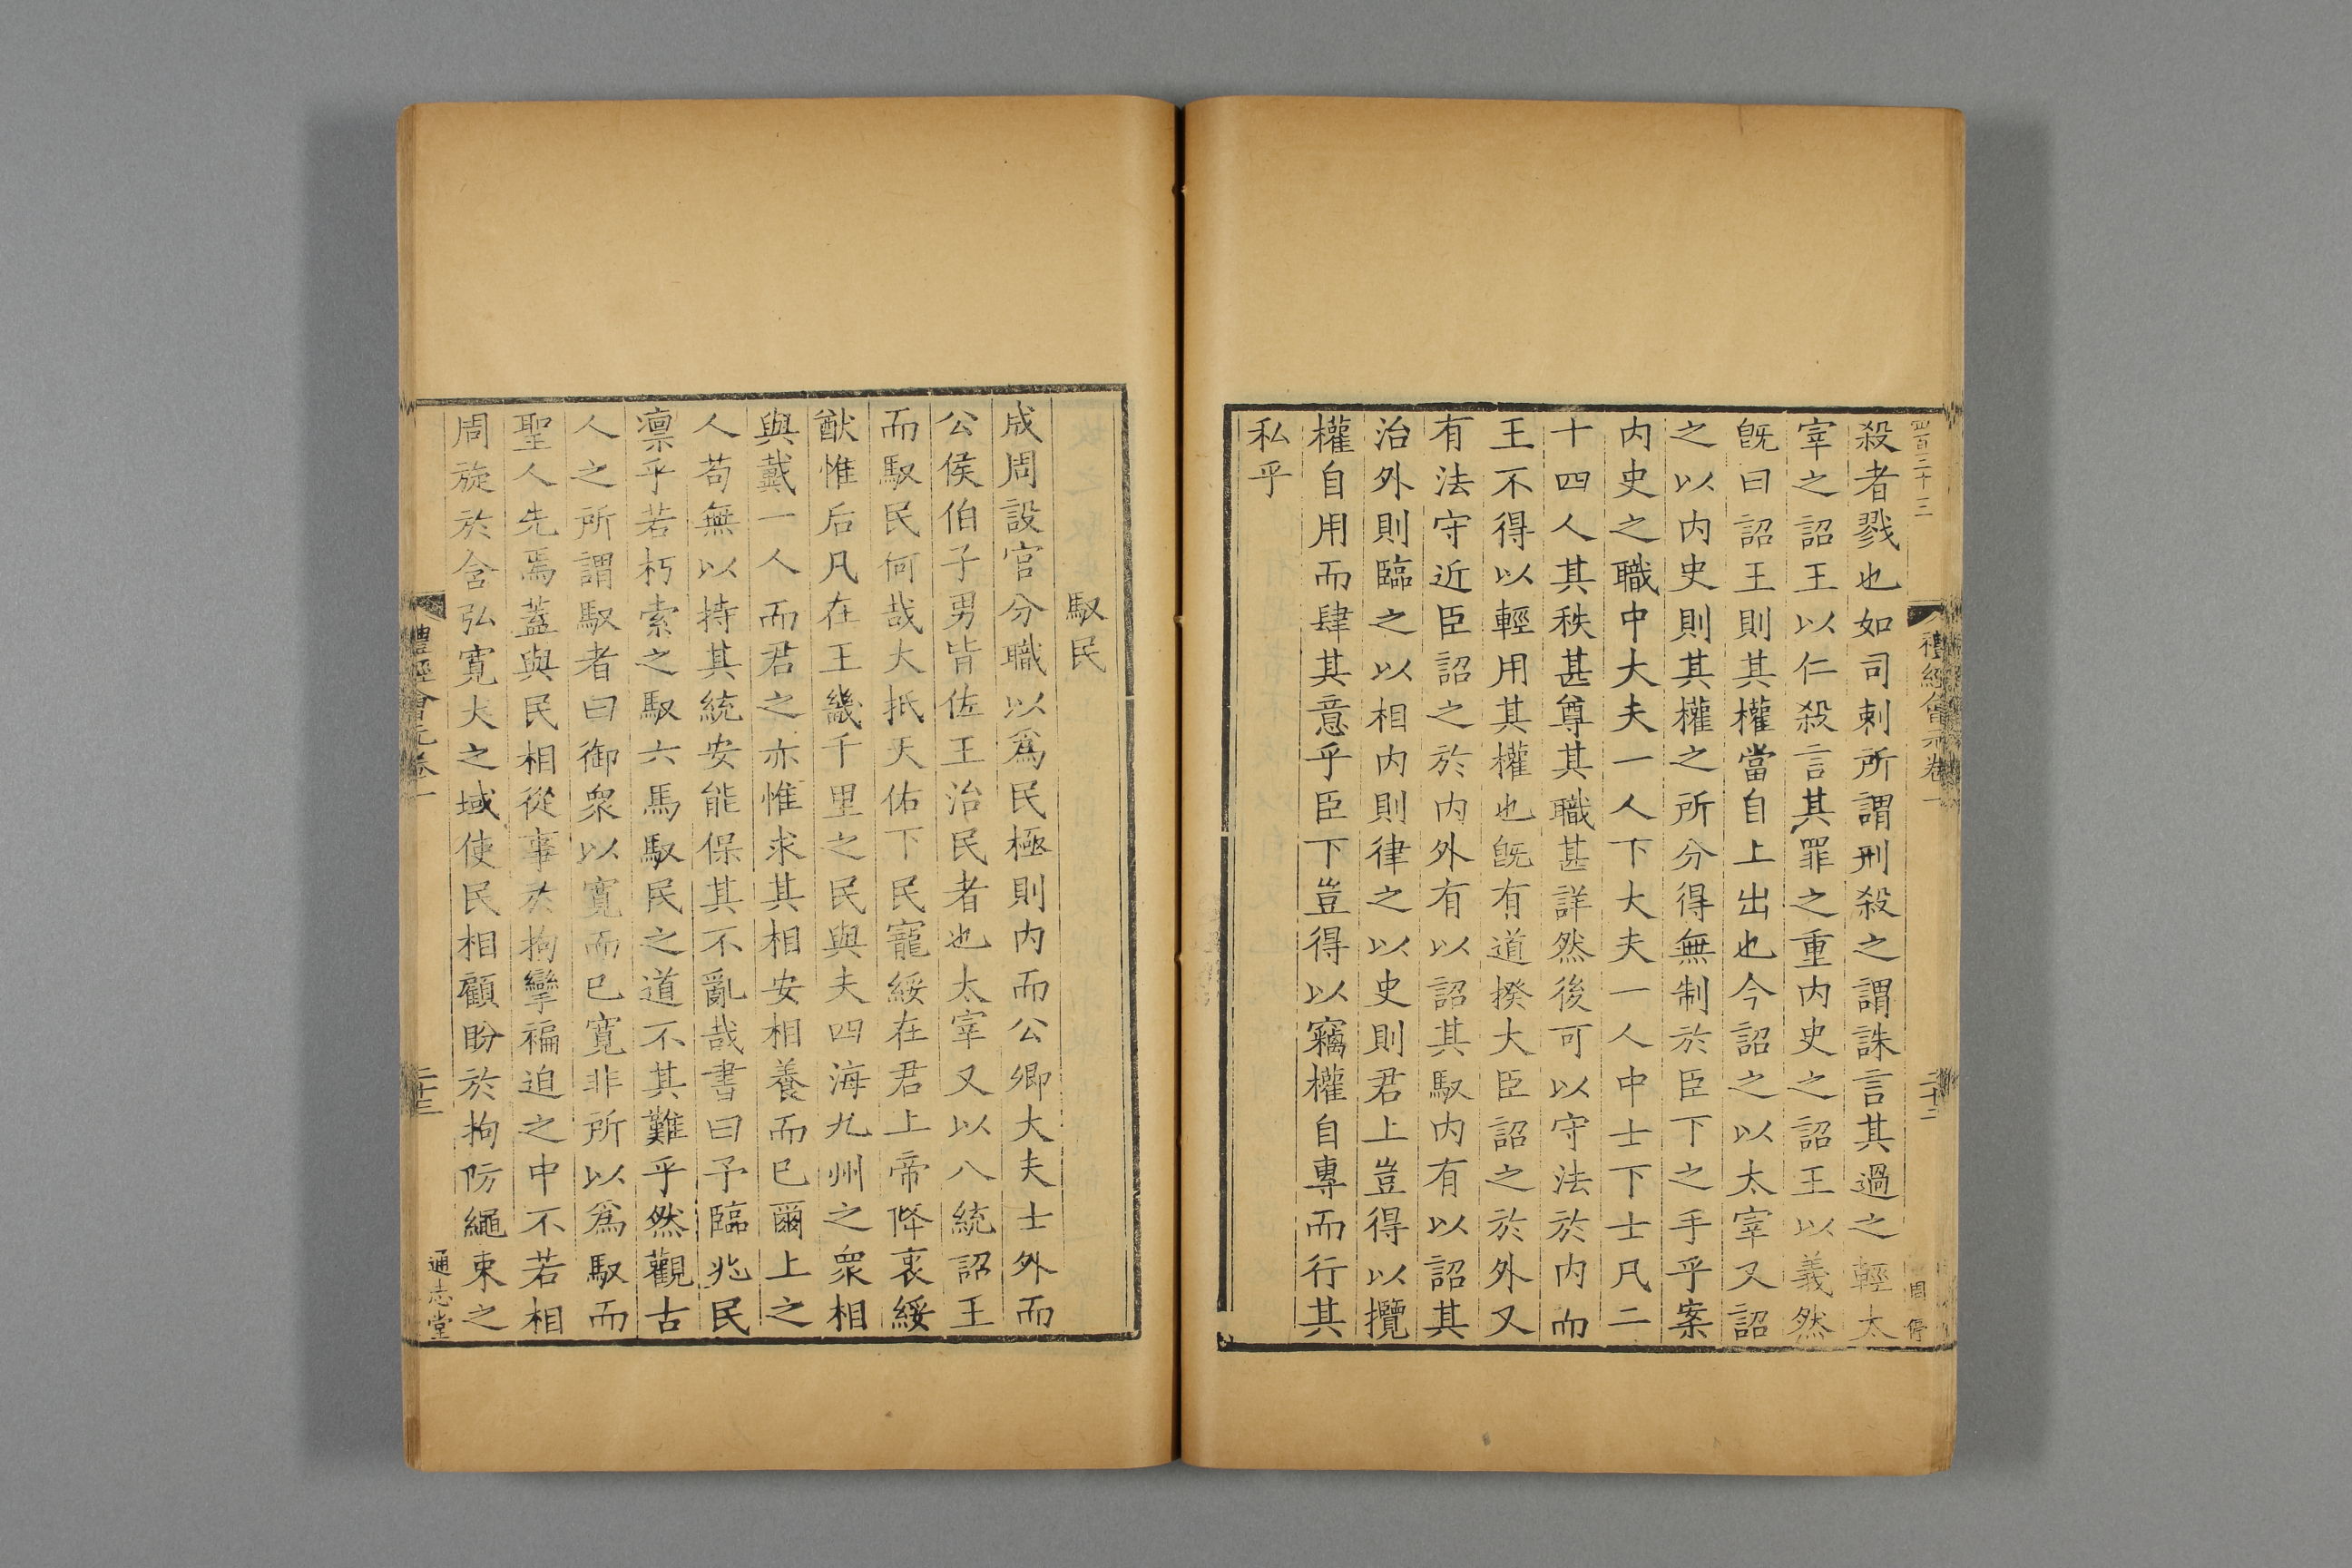 四百二十三
禮經會元卷一
二十二
殺者戮也如司刺所謂刑殺之謂誅言其過之輕太
宰之詔王以仁殺言其罪之重内史之詔王以義然
旣曰詔王則其權當自上出也今詔之以太宰又詔
之以内史則其權之所分得無制於臣下之手乎案
内史之職中大夫一人下大夫一人中士下士凡二
十四人其秩甚尊其職甚詳然後可以守法於内而
王不得以輕用其權也旣有道揆大臣詔之於外又
有法守近臣詔之於内外有以詔其馭内有以詔其
治外則臨之以相内則律之以史則君上豈得以攬
權自用而肆其意乎臣下豈得以竊權自專而行其
私乎
馭民
成周設官分職以爲民極則内而公卿大夫士外而
公侯伯子男皆佐王治民者也太宰又以八統詔王
而馭民何哉大抵天佑下民寵綏在君上帝降衷綏
猷惟后凡在王畿千里之民與夫四海九州之衆相
與戴一人而君之亦惟求其相安相養而已爾上之
人苟無以持其統安能保其不亂哉書曰予臨兆民
凛乎若朽索之馭六馬馭民之道不其難乎然觀古
人之所謂馭者曰御衆以寬而已寬非所以爲馭而
聖人先焉蓋與民相從事於拘攣褊迫之中不若相
周旋於含弘寬大之域使民相顧盼於拘防繩束之
禮經會元卷一
二十三
通志堂